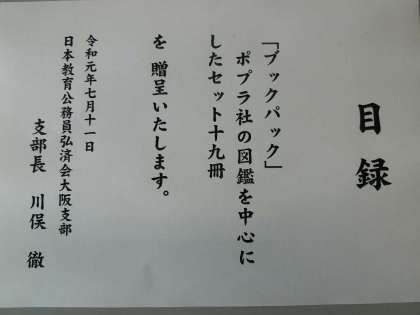 目録
「ブックパック」
ポプラ社の図鑑を中心に
したセット十九冊
を 贈呈いたします。
令和元年七月十一日
日本教育公務員弘済会大阪支部
支部長 川俣 徹